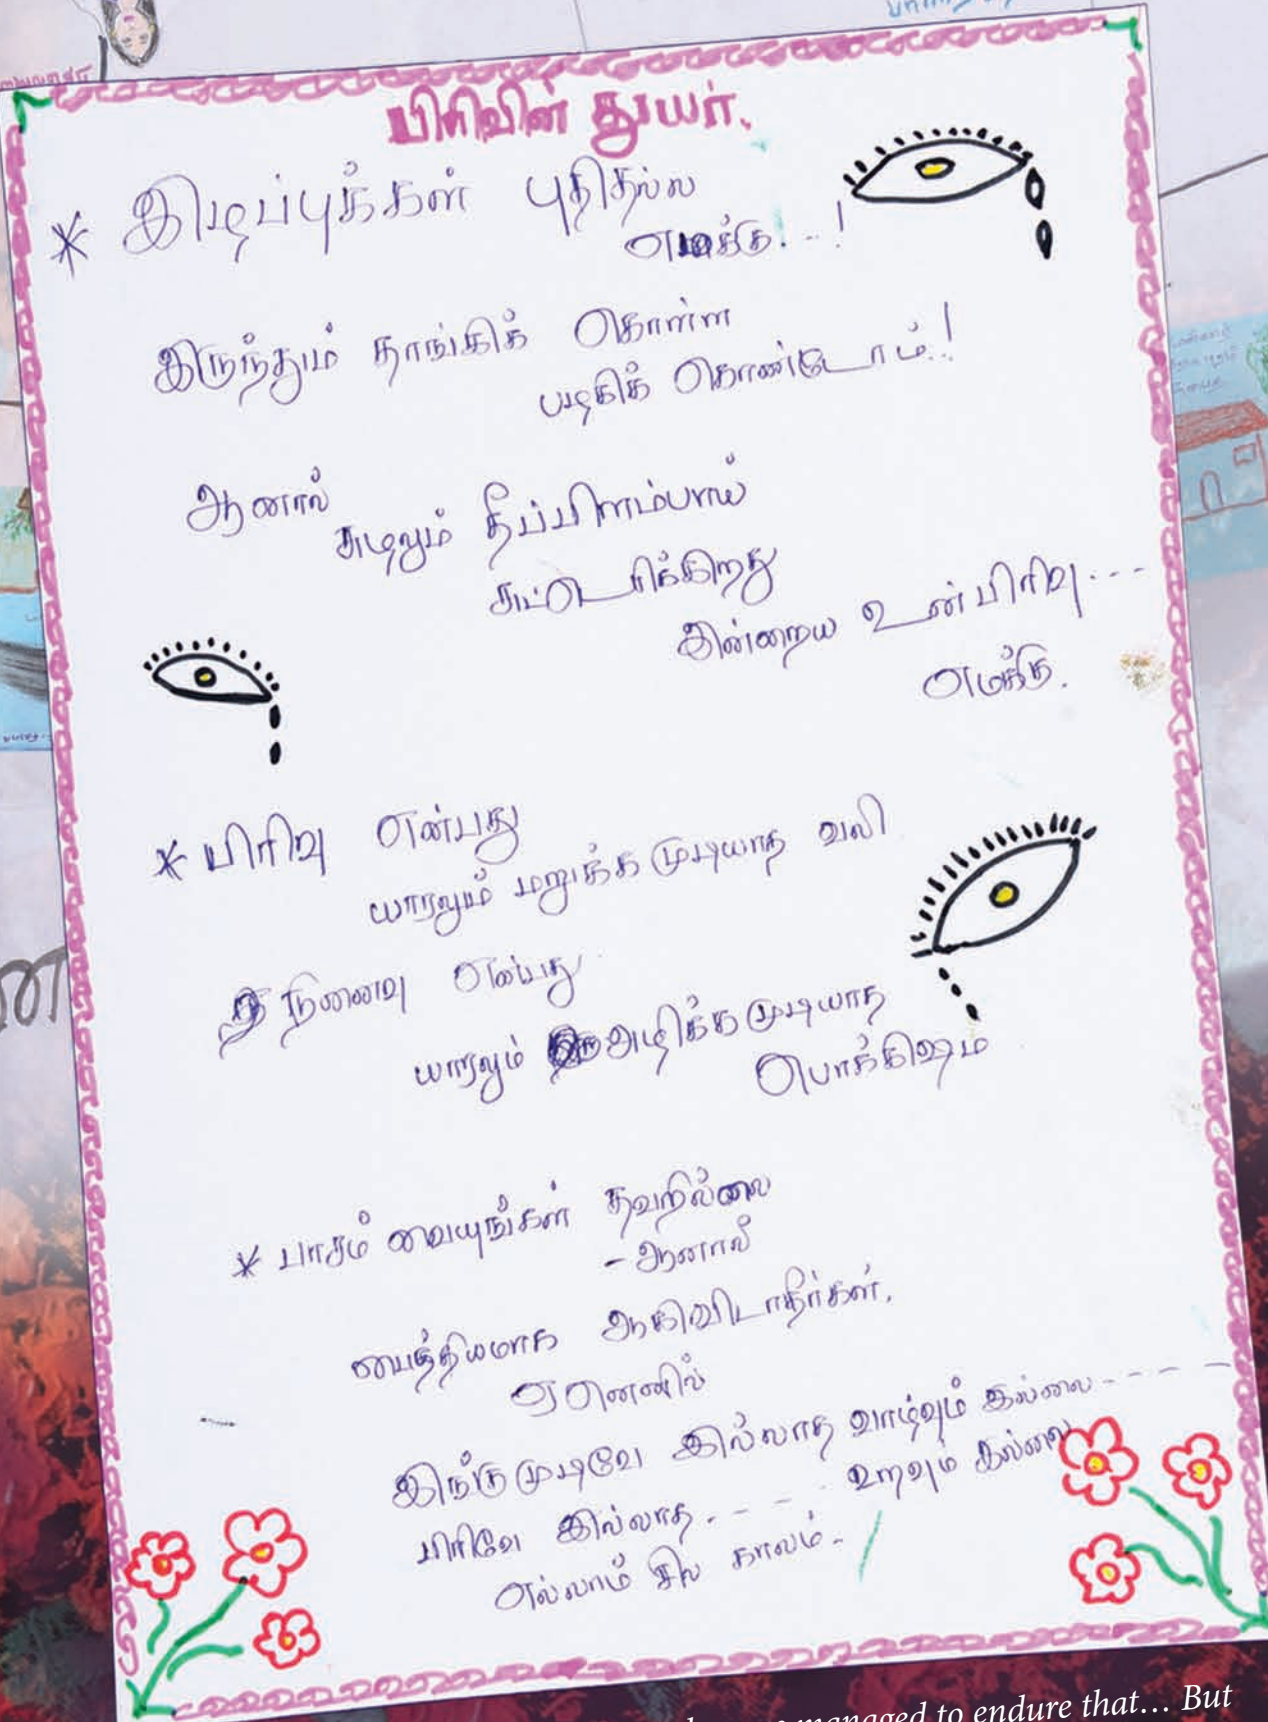 பிரிவின் துயர்.
* இழப்புக்கள் புதிதல்ல
எமக்கு...!
இருந்தும் தாங்கிக் கொள்ள
பழகிக் கொண்டோம்..!
ஆனால்
சுழலும் தீப்பிளம்பாய்
சுட்டெரிக்கிறது
இன்றைய உன் பிரிவு...
எமக்கு.
* பிரிவு என்பது
யாரலும் மறுக்க முடியாத வலி
நினைவு என்பது
யாரலும் அழிக்க முடியாத
பொக்கிஷம்
* பாசம் வையுங்கள் தவறில்லை
- ஆனால்
பைத்தியமாக ஆகிவிடாதீர்கள்.
ஏனெனில்
இங்கு முடிவே இல்லாத வாழ்வும் இல்லை - - - - -
பிரிவே இல்லாத. - - . உறவும் இல்லை
எல்லாம் சில காலம்.
managed to endure that… But